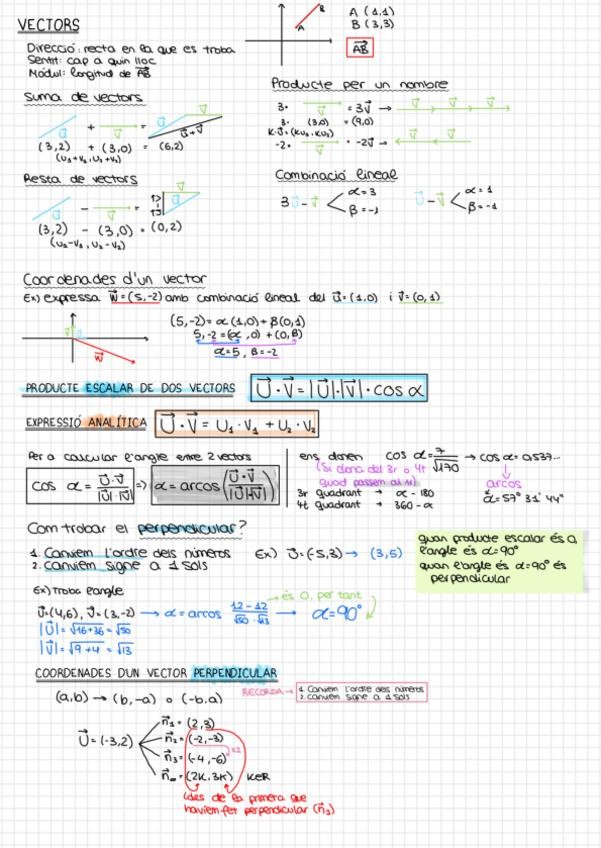 VECTORS
A (1,1)
B (3,3)
A B
AB
Direcció: recta en la que es troba
Sentit: cap a quin lloc
Mòdul: longitud de AB
Producte per un nombre
Suma de vectors
3· v = 3v →
3· (3,0) = (9,0)
K·v = (KU₁, KU₂)
-2· v · -2v →
u + v = u+v
(3,2) + (3,0) = (6,2)
(U₁+V₁, U₂+V₂)
Resta de vectors
Combinació lineal
3u - v < α=3
β=-1
u - v < α=1
β=-1
(3,2) - (3,0) = (0,2)
(U₁-V₁, U₂-V₂)
Coordenades d'un vector
Ex) expressa w=(5,-2) amb combinació lineal del u=(1,0) i v=(0,1)
(5,-2)= α(1,0)+β(0,1)
5,-2 = (α,0) + (0,β)
α=5, β=-2
w
PRODUCTE ESCALAR DE DOS VECTORS U·V = |U|·|V|·cos α
EXPRESSIÓ ANALÍTICA U·V = U₁·V₁ + U₂·V₂
Per a calcular l'angle entre 2 vectors
cos α = U·V / |U|·|V| => α = arcos (U·V / |U|·|V|)
ens donen cos α = 7/√170 → cos α = 0,537...
(Si dona del 3r o 4t quad passem al 1r)
↓ arcos
α=57° 31' 44"
3r quadrant → α - 180
4t quadrant → 360 - α
Com trobar el perpendicular?
1. Canviem l'ordre dels números
2. Canviem signe a 1 sols
Ex) U=(-5,3) → (3,5)
quan producte escalar és 0
l'angle és α=90°
quan l'angle és α=90° és
perpendicular
Ex) troba l'angle
U=(4,6), V=(3,-2) → α = arcos 12-12 / √50·√13 → α=90°
és 0, per tant
|U| = √16+36 = √50
|V| = √9+4 = √13
COORDENADES DUN VECTOR PERPENDICULAR
(a,b) → (b,-a) o (-b,a)
RECORDA → 1. Canviem l'ordre dels números
2. Canviem signe a 1 sols
U = (-3,2)
n₁ = (2,3)
n₂ = (-2,-3)
n₃ = (-4,-6) x2
n∞ = (2K,3K) K∈R
(des de la primera que
haviem fet perpendicular (n₁)